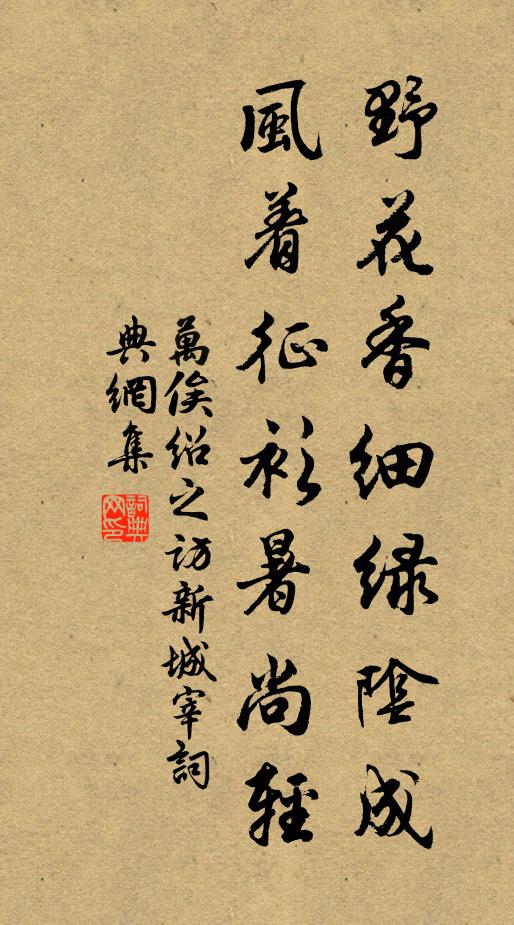 野花香细緑陰成
風着征衫暑尚輕
萬俟绍之访新城宰詞
典網集
詞典网印